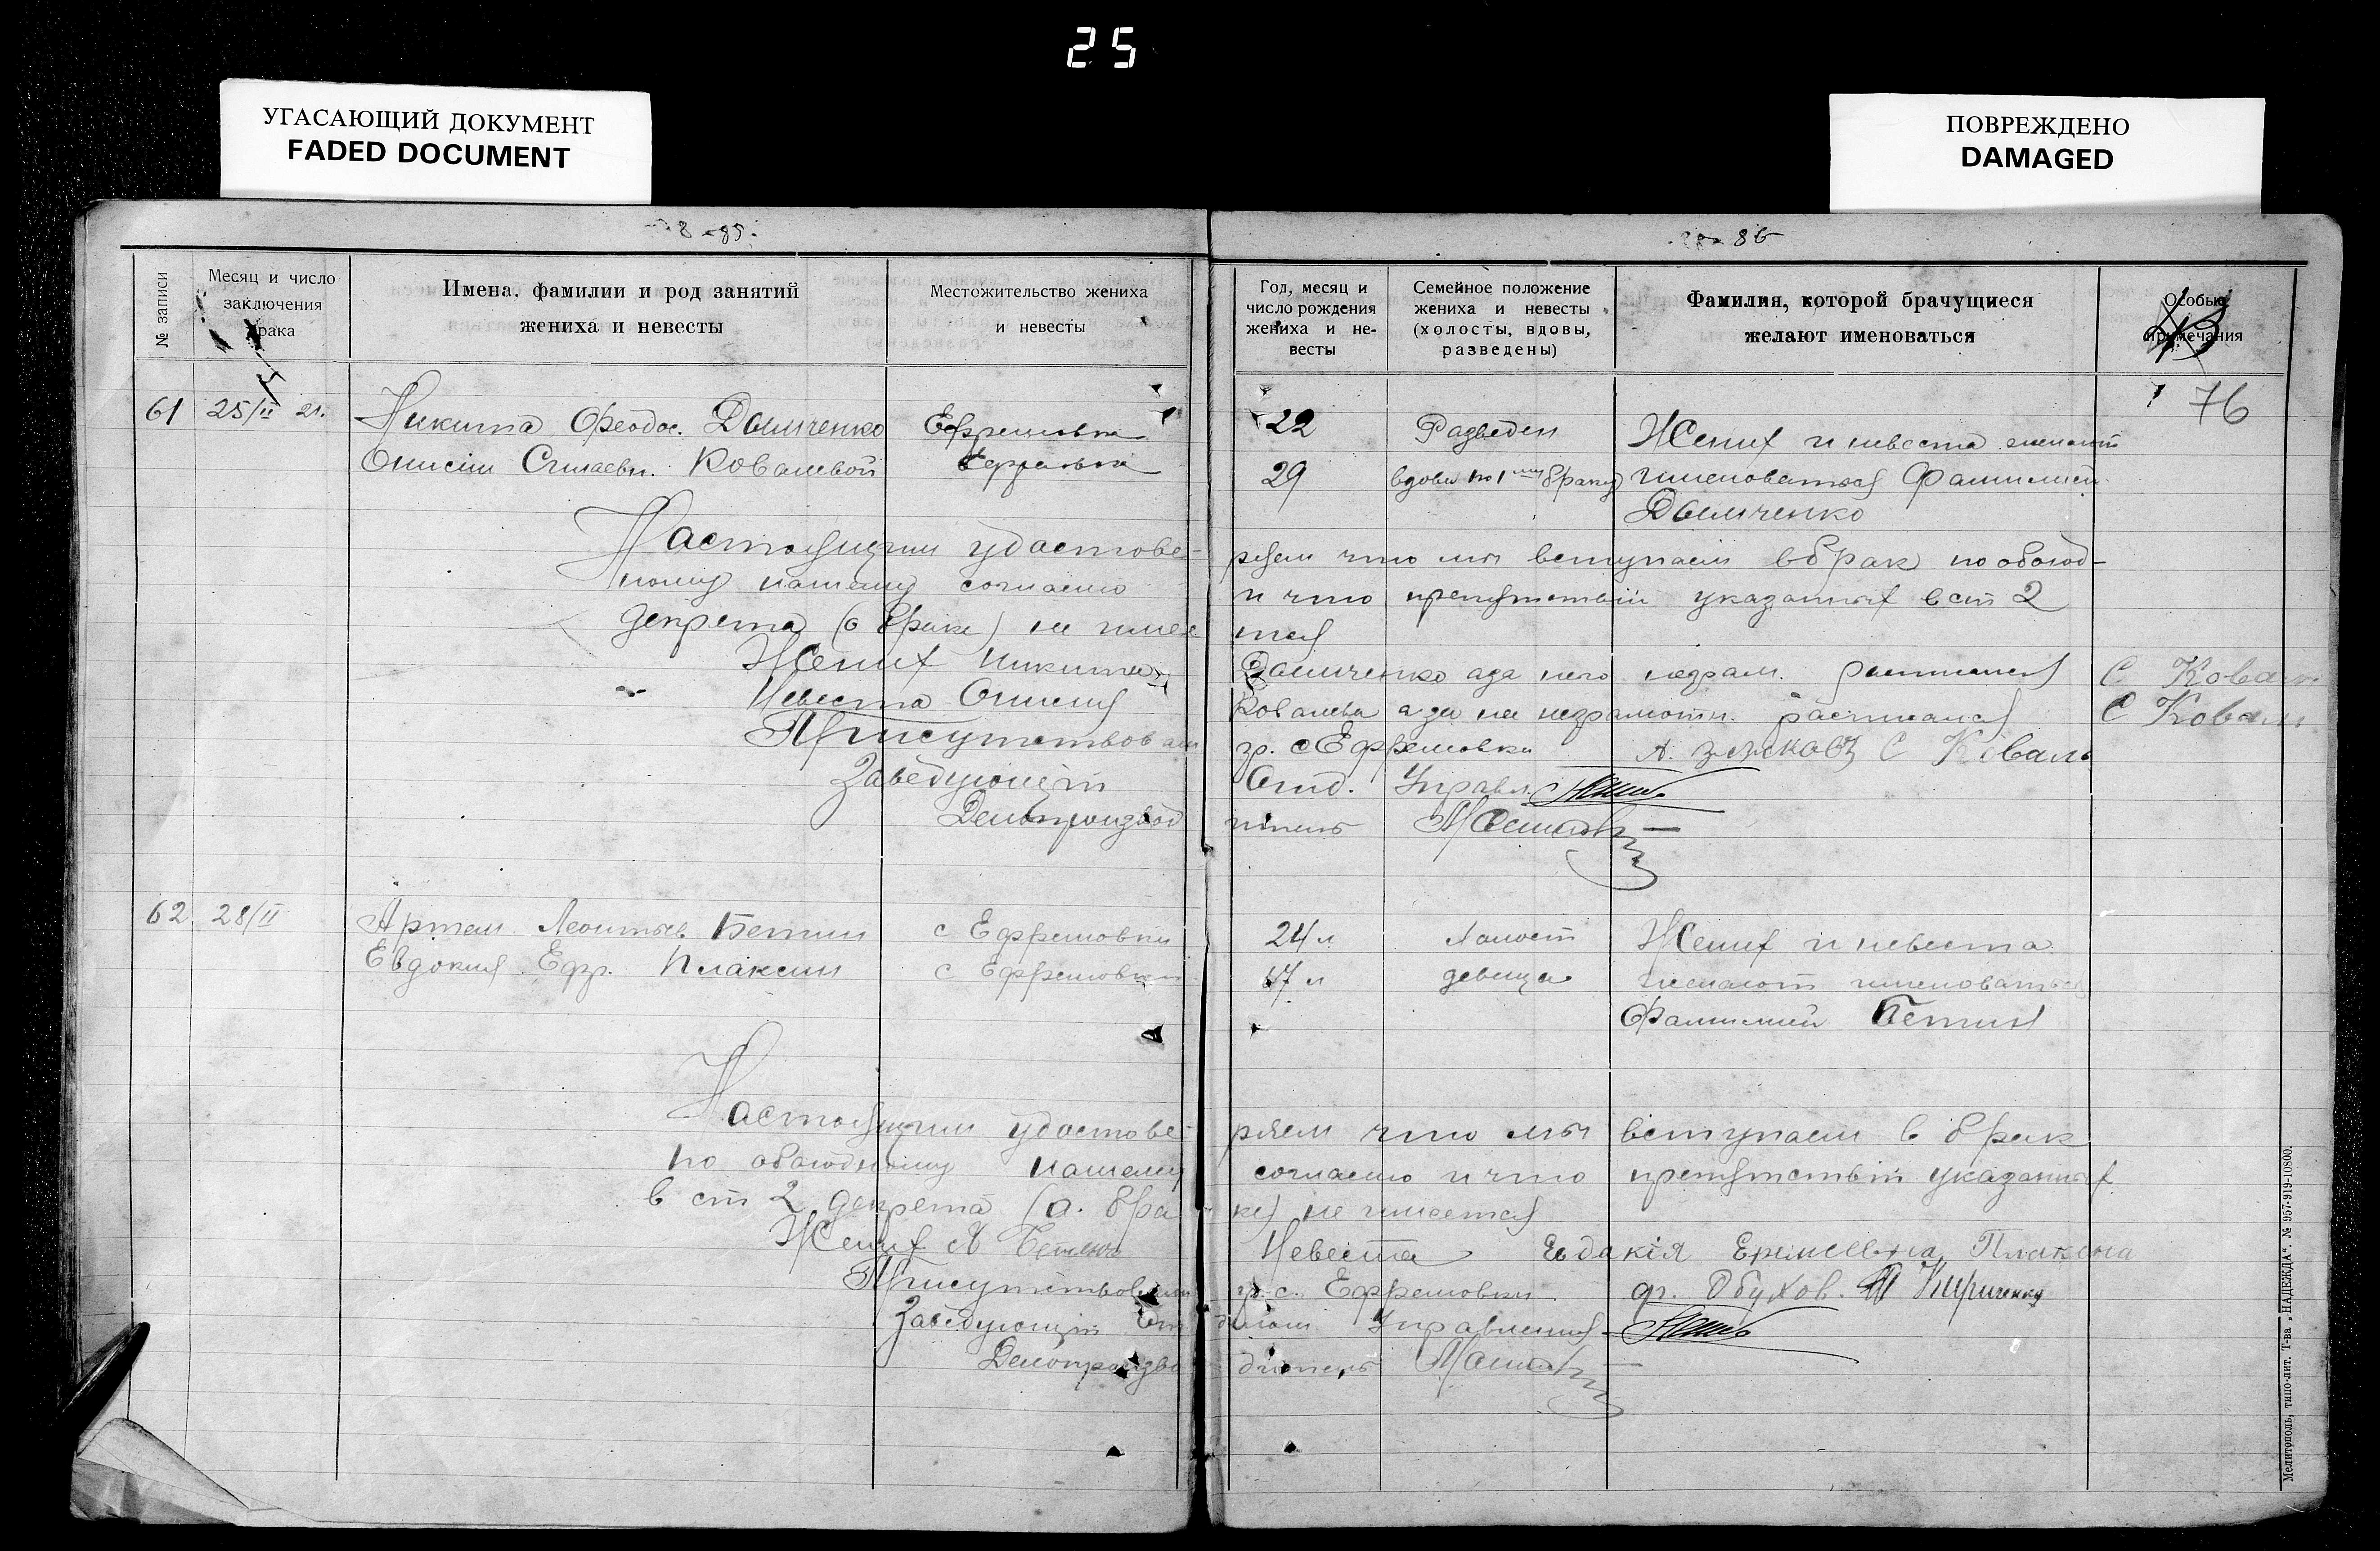 25
УГАСАЮЩИЙ ДОКУМЕНТ
FADED DOCUMENT
ПОВРЕЖДЕНО
DAMAGED
85.
86
№ записи
Месяц и число
заключения
брака
Имена, фамилии и род занятий
жениха и невесты
Местожительство жениха
и невесты
Год, месяц и
число рождения
жениха и не-
весты
Семейное положение
жениха и невесты
(холосты, вдовы,
разведены)
Фамилия, которой брачущиеся
желают именоваться
Особые
примечания
76
61 25/II 21. Никита Феодос. Дымченко Ефремовка 22 Разведен Жених и невеста желают
Ковалевой 29 вдова по 1му браку именоваться Фамилией
Дымченко
Настоящим удостове- ряем что мы вступаем в брак по обоюд-
ному нашему согласию и что препятствий указанных в ст 2
декрета (о браке) не имее тся
Жених Никита Дымченко а за него неграм. расписался С Коваль
Невеста Ковалева а за нее неграмотн. расписался С Коваль
Присутствовали гр. с Ефремовки С Коваль
Заведующий Отд. Управл.
Делопроизвод итель
62 28/II Артем Леонтьев Бетин с Ефремовки 24 л холост Жених и невеста
Евдокия Ефр. Плаксин с Ефремовки 17 л девица желают именоваться
Фамилией Бетин
Настоящим удостове- ряем что мы вступаем в брак
по обоюдному нашему согласию и что препятствий указанных
в ст 2 декрета (о. бра ке) не имеется
Жених А Невеста Евдакія Плаксина
Присутствовали гр. с. Ефремовки гр. Обухов. Кириченко
Заведующий От делом Управления
Делопроизво дитель
Мелитополь, типо-лит. Т-ва „НАДЕЖДА“. № 957-919-10800.